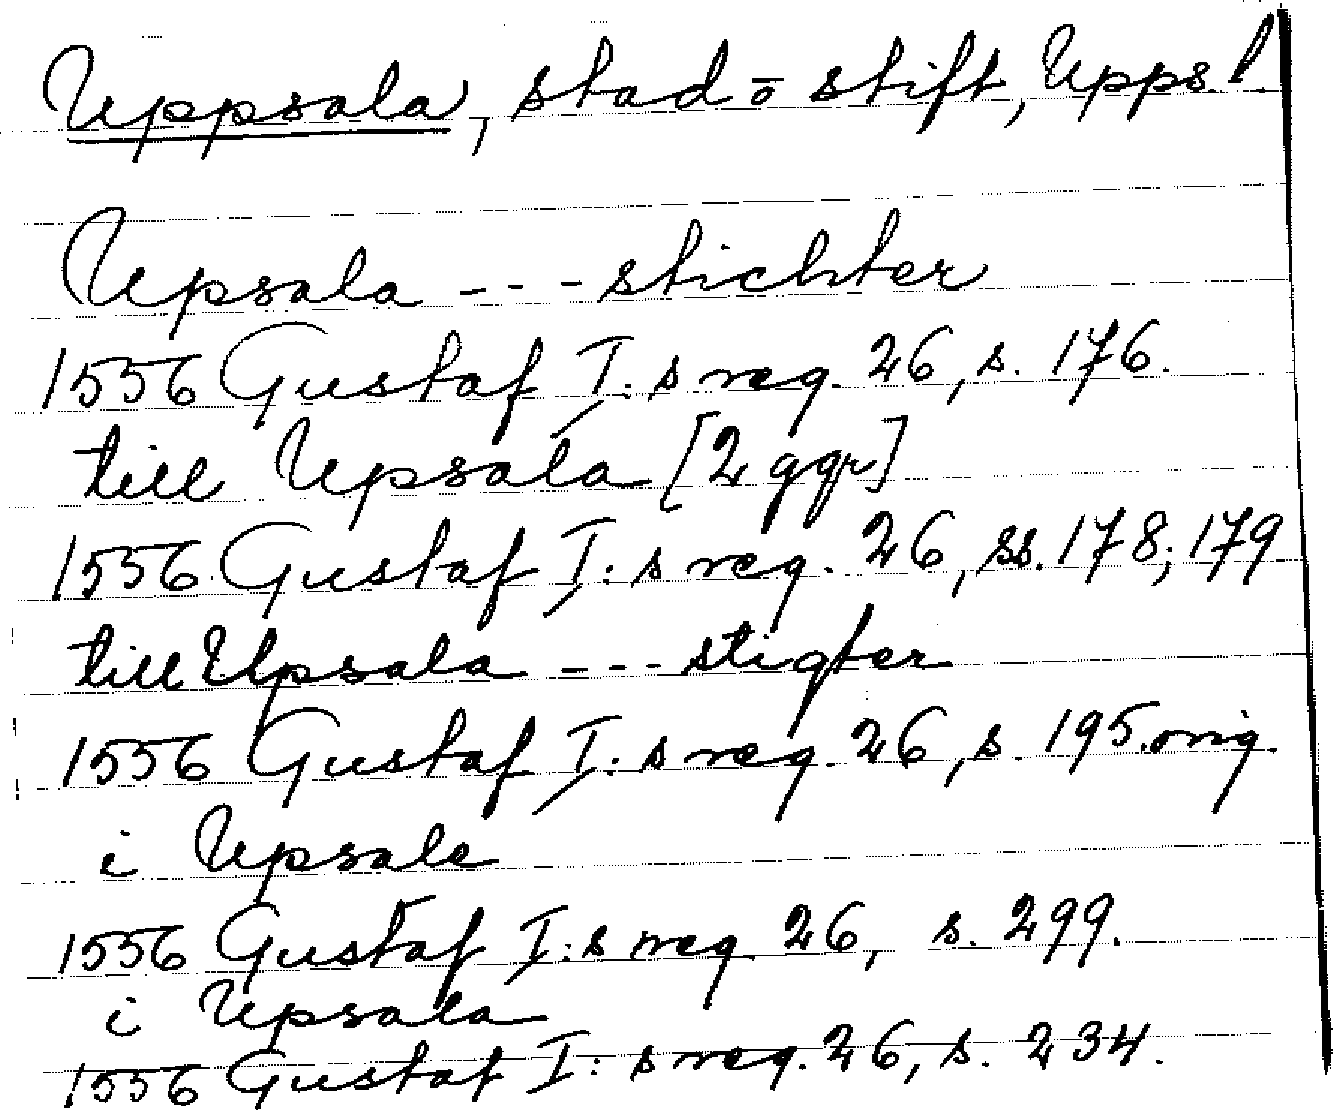 Uppsala, stad o stift, Upps. l
Upsala - - - stichter
1556 Gustaf I:s reg. 26, s. 176.
till Upsala [2 ggr]
1556 Gustaf I:s reg. 26, ss. 178, 179
till Upsala - - - stigter
1556 Gustaf I:s reg. 26, s. 195. orig.
i Upsale
1556 Gustaf I:s reg 26, s. 299.
i Upsala
1556 Gustaf I:s reg. 26, s. 234.